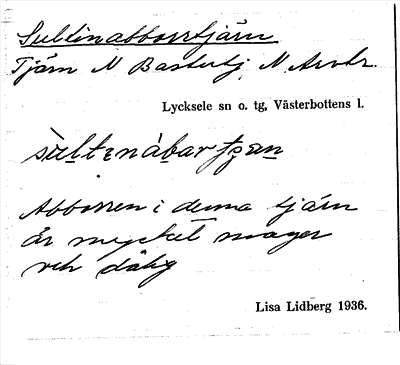 Sultinabborrtjärn
Tjärn N Bastutj. N.
Lycksele sn o. tg, Västerbottens l.
Abborren i denna tjärn
är mycket mager
och dålig
Lisa Lidberg 1936.